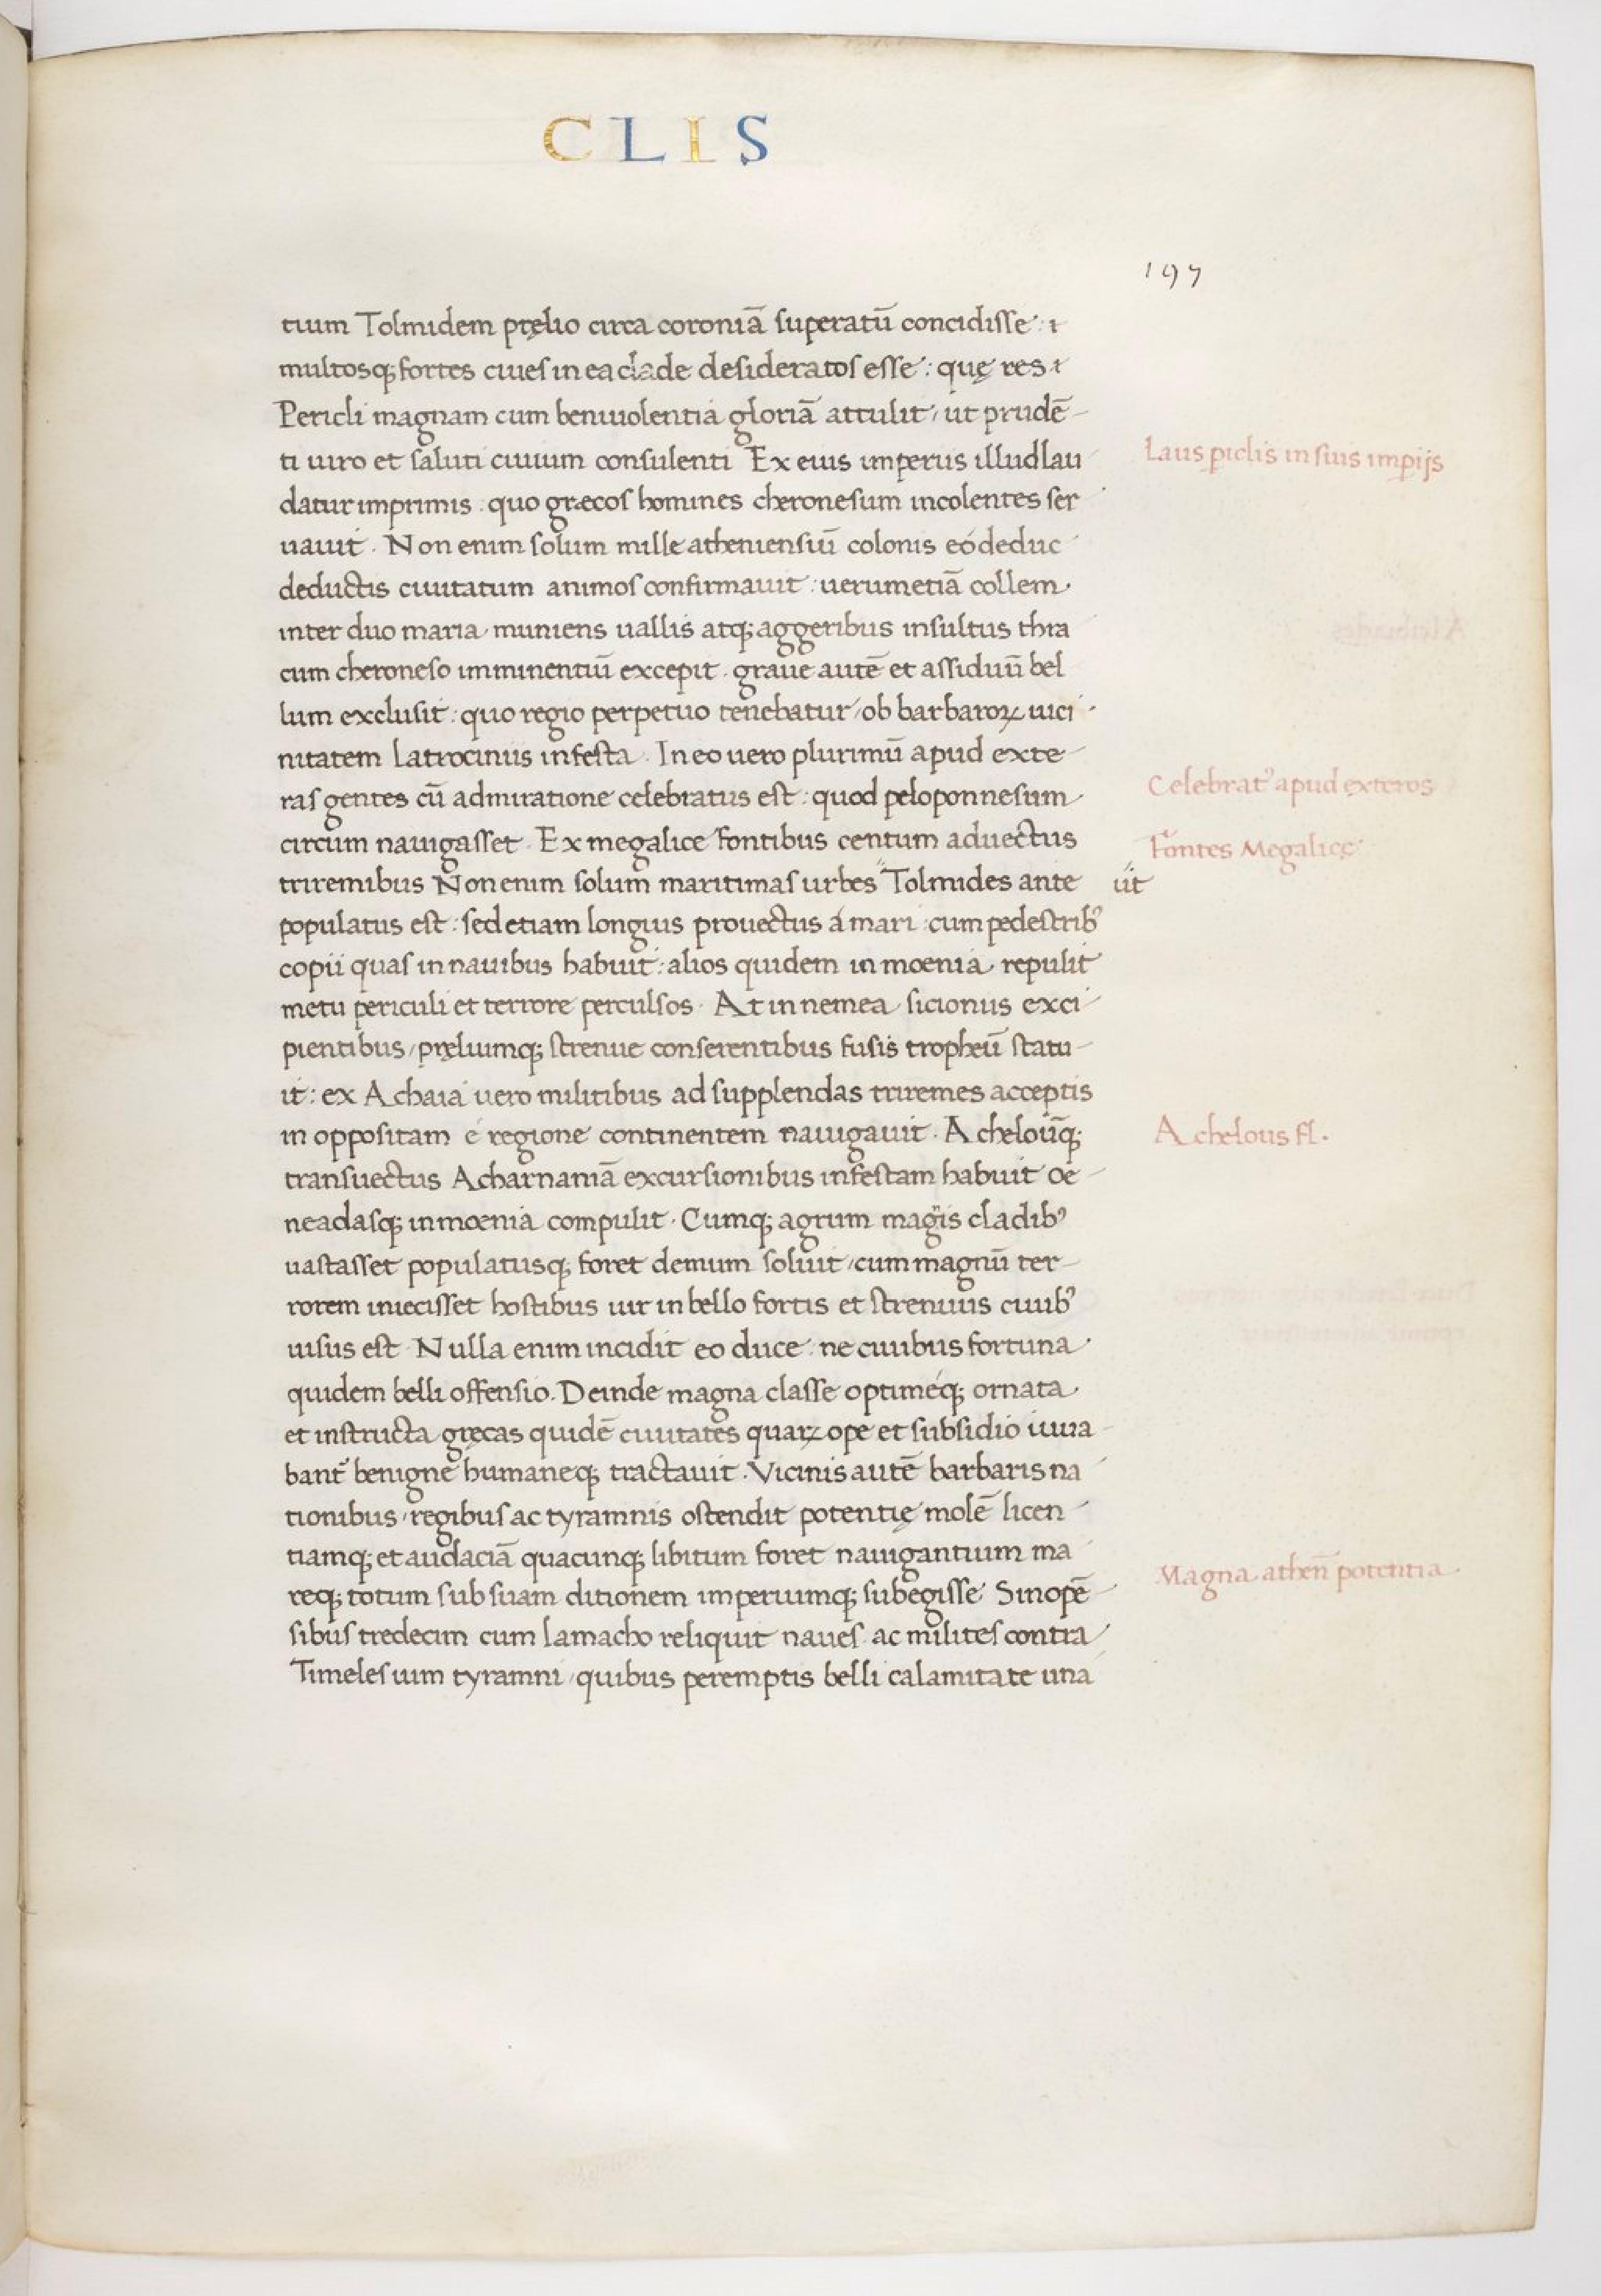 CLIS
197
tium Tolmidem pręlio circa coroniā superatū concidisse : ⁊
multosq; fortes ciues in ea clade desideratos esse : quę res ⁊
Pericli magnam cum beniuolentia gloriā attulit / ut prudē-
ti uiro et saluti ciuium consulenti Ex eius imperiis illud lau
Laus piclis in suis impijs
datur imprimis : quo græcos homines cheronesum incolentes ser
uauit . Non enim solum mille atheniensiū colonis eó deduc
deductis ciuitatum animos confirmauit : uerumetiā collem
inter duo maria muniens uallis atq; aggeribus insultus thra
cum cheroneso imminentiū excepit . graue autē et assiduū bel
lum exclusit : quo regio perpetuo tenebatur / ob barbaroꝝ uici
nitatem latrociniis infesta . In eo uero plurimū apud exte-
ras gentes cū admiratione celebratus est : quod peloponnesum
Celebrat᾽ apud exteros
circum nauigasset . Ex megalice fontibus centum aduectus
Fontes Megalicę
triremibus Non enim solum maritimas urbes " Tolmides ante
"ut
populatus est : sed etiam longius prouectus á mari : cum pedestrib᾽
copii quas in nauibus habuit : alios quidem in moenia repulit
metu periculi et terrore perculsos . At in nemea sicionus exci-
pientibus / pręliumq; strenue conserentibus fusis tropheū statu-
it : ex Achaia uero militibus ad supplendas triremes acceptis
in oppositam é regione continentem nauigauit . Achelouq̄;
Achelous fl.
transuectus Acharnaniā excursionibus infestam habuit oe-
neadasq; in moenia compulit . Cumq; agrum magis cladib᾽
uastasset populatusq; foret demum soluit / cum magnū ter-
rorem iniecisset hostibus uir in bello fortis et strenuus ciuib᾽
uisus est . Nulla enim incidit eo duce : ne ciuibus fortuna
quidem belli offensio . Deinde magna classe optiméq; ornata
et instructa gręcas quidē ciuitates quaꝝ ope et subsidio iuua-
bant᾽ benigne humaneq; tractauit . Vicinis autē barbaris na
tionibus / regibus ac tyramnis ostendit potentię molē licen
tiamq; et audaciā quacunq; libitum foret nauigantium ma
Magna athen̄ potentia
req; totum sub suam ditionem imperiumq; subegisse Sinopē-
sibus tredecim cum lamacho reliquit naues ac milites contra
Timelesium tyramni / quibus peremptis belli calamitate una